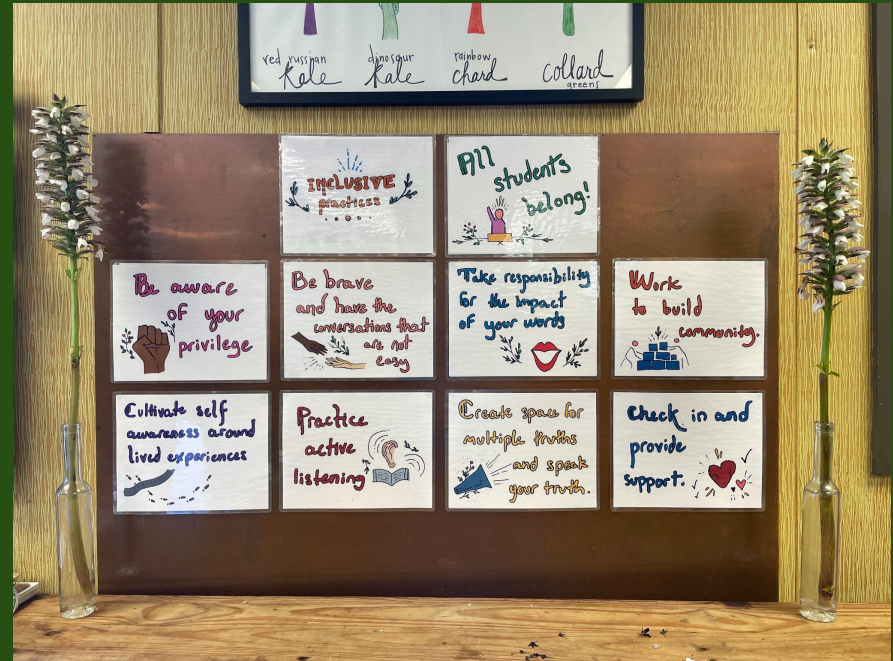 red russian
Kale
dinosaur
Kale
rainbow
chard
collard
greens
INCLUSIVE
practices
All
students
belong!
Be aware
of your
privilege
Be brave
and have the
conversations that
are not
easy
Take responsibility
for the impact
of your words
Work
to build
community.
Cultivate self
awareness around
lived experiences
Practice
active
listening
Create space for
multiple truths
and speak
your truth.
Check in and
provide
support.